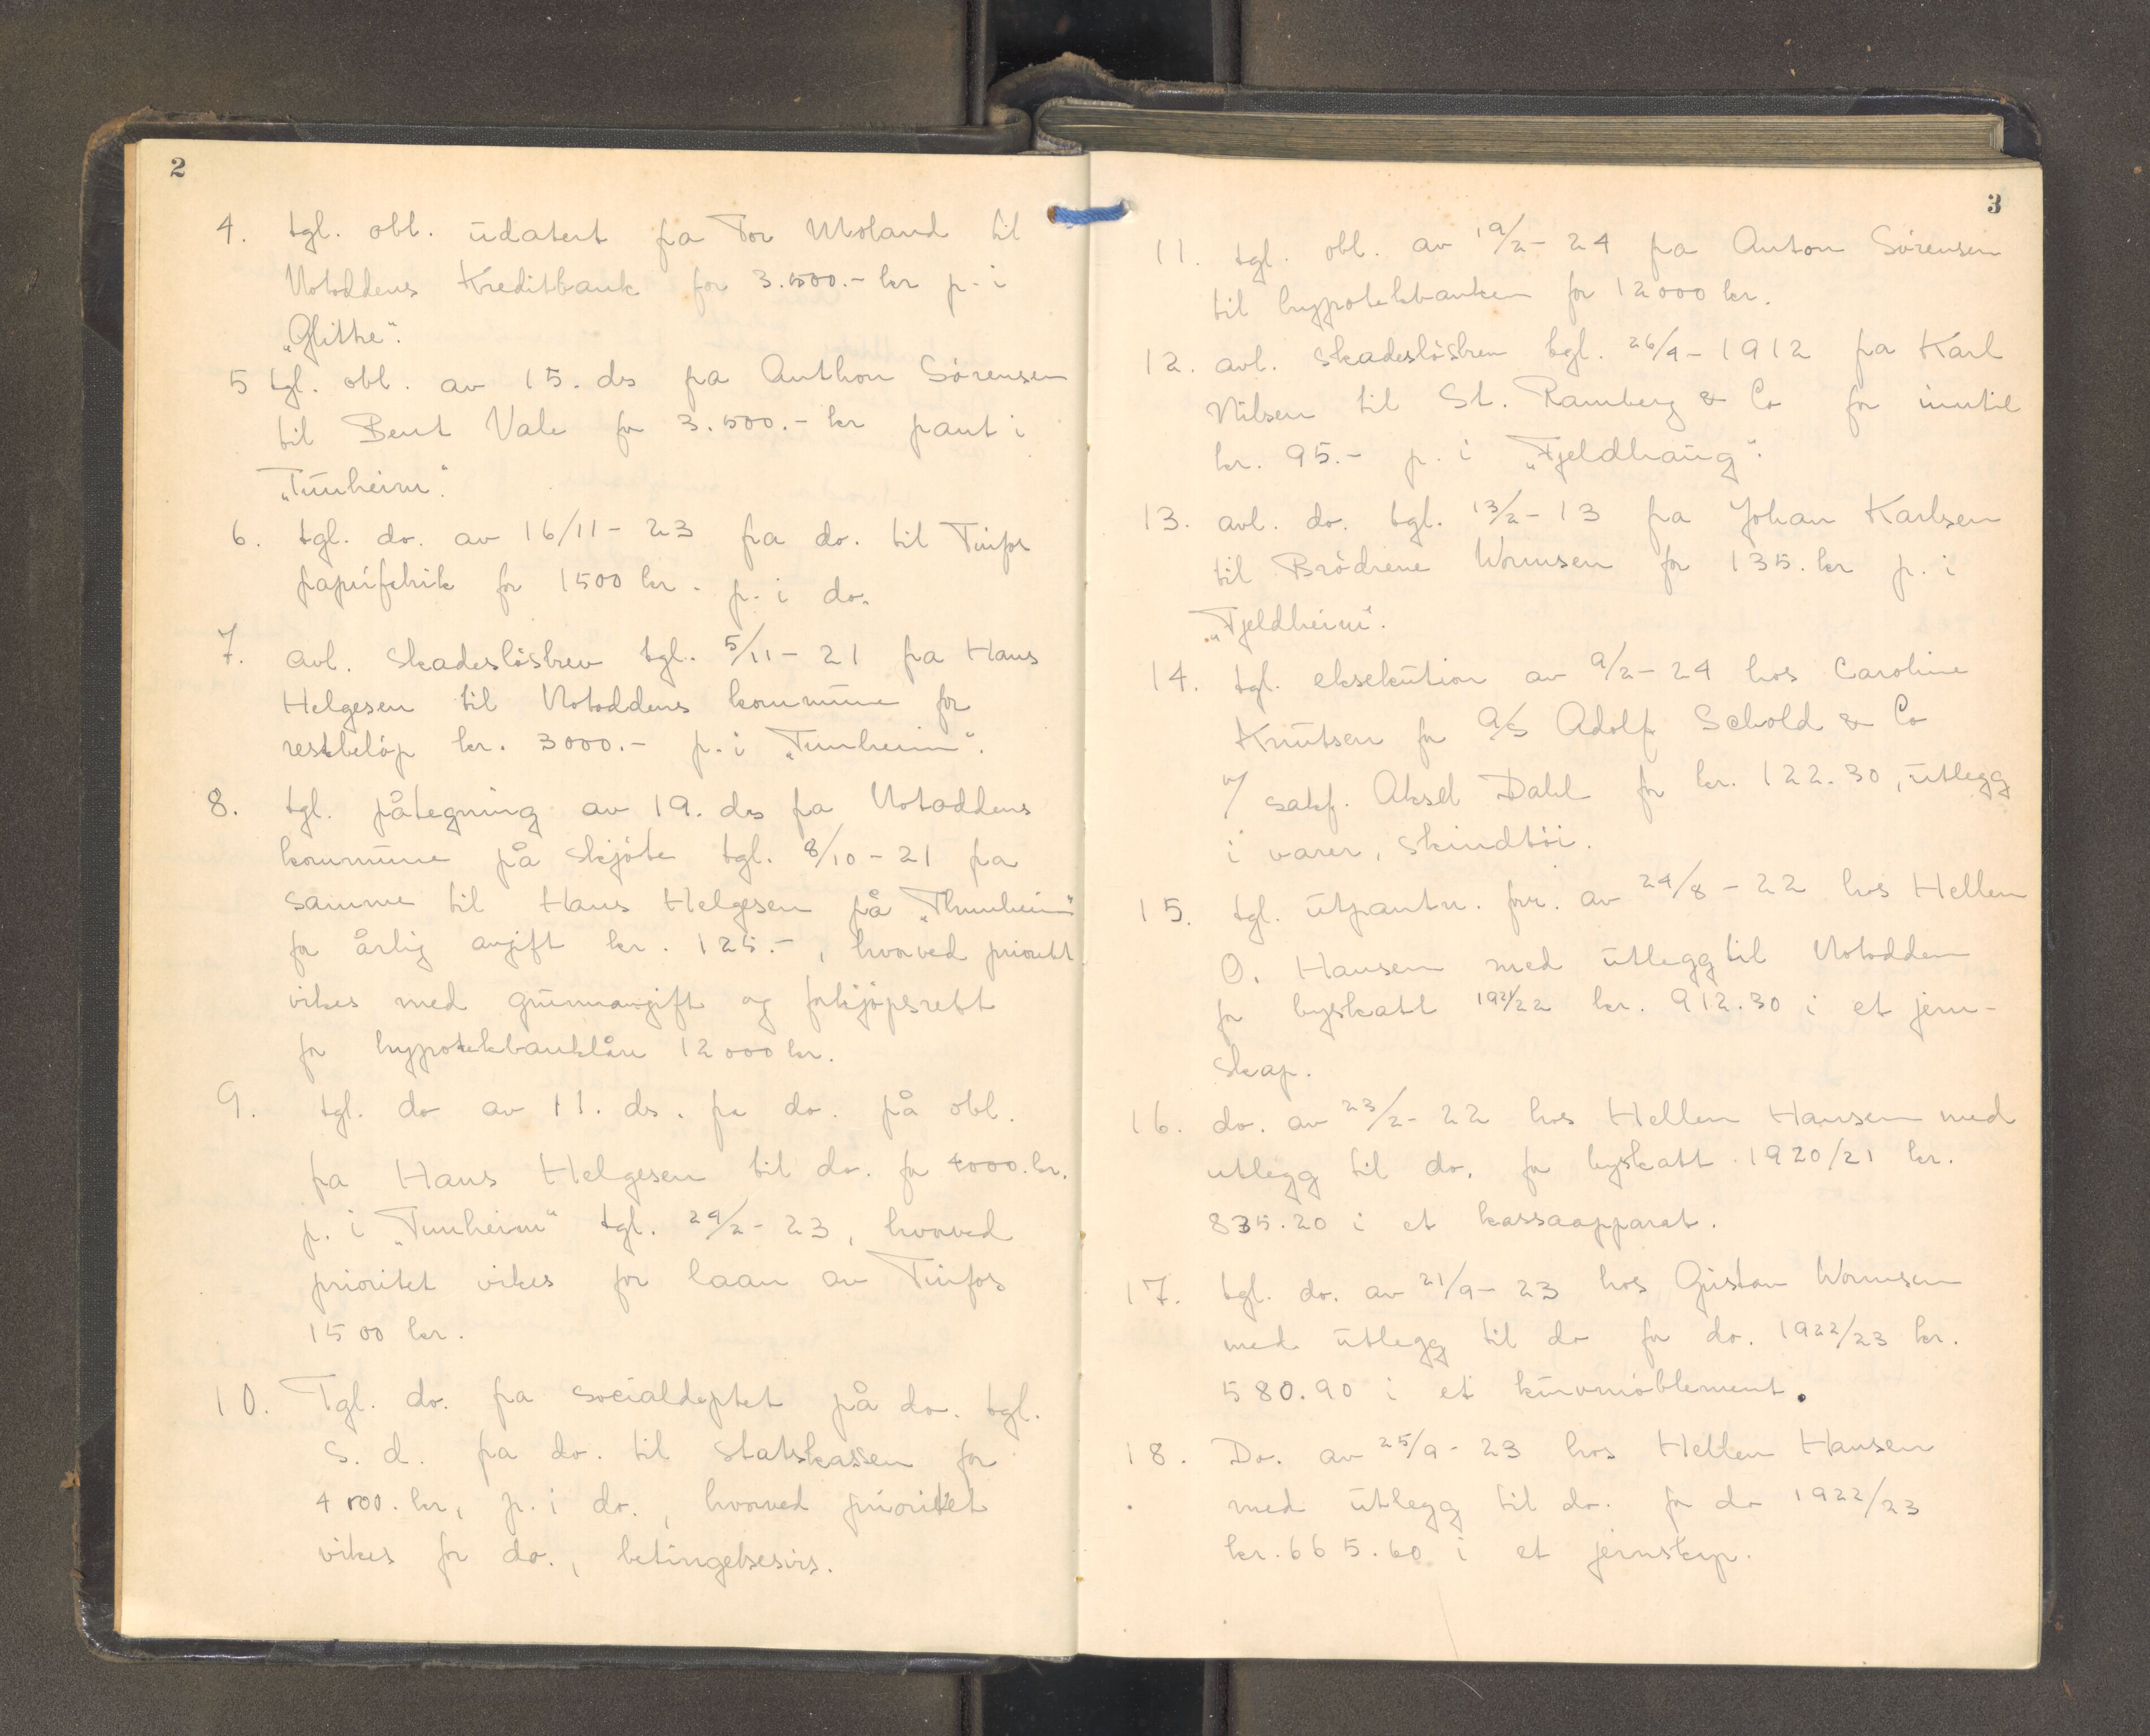 2
4. tgl. obl. udatert fra Tor Moland til
Notoddens Kreditbank for 3.500.- kr p. i
„Glitre“.
5 tgl. obl. av 15. ds fra Anthon Sørensen
til Bent Vale for 3.500.- kr pant i
„Tunheim“.
6. tgl. do. av 16/11 - 23 fra do. til Tinfos
papirfabrik for 1500 kr. p. i do.
7. avl. skadesløsbrev tgl. 5/11 - 21 fra Hans
Helgesen til Notoddens kommune for
restbeløp kr. 3000.- p. i „Tunheim“.
8. tgl. påtegning av 19. ds fra Notoddens
kommune på skjøte tgl. 8/10 - 21 fra
samme til Hans Helgesen på „Thunheim“
for årlig avgift kr. 125.-, hvorved prioritet
vikes med grunnavgift og forkjøpsrett
for hypotekbanklån 12000 kr.
9. tgl. do av 11. ds. fra do. på obl.
fra Hans Helgesen til do. for 4000. kr.
p. i „Tunheim“ tgl. 29/2 - 23, hvorved
prioritet vikes for laan av Tinfos
1500 kr.
10. Tgl. do. fra socialdeptet på do. tgl.
s. d. fra do. til statskassen for
4000. kr, p. i do., hvorved prioritet
vikes for do., betingelsesvis.
3
11. tgl. obl. av 19/2 - 24 fra Anton Sørensen
til hypotekbanken for 12000 kr.
12. avl. skadesløsbrev tgl. 26/9 - 1912 fra Karl
Nilsen til St. Ramberg & Co for inntil
kr. 95.- p. i „Fjeldhaug“.
13. avl. do. tgl. 13/2 - 13 fra Johan Karlsen
til Brødrene Wormsen for 135. kr p. i
„Fjeldheim“.
14. tgl. eksekution av 9/2 - 24 hos Caroline
Knutsen for A/S Adolf Schold & Co
v/ sakf. Aksel Dahl for kr. 122.30, utlegg
i varer, skindtøi.
15. tgl. utpantn. forr. av 24/8 - 22 hos Hellen
O. Hansen med utlegg til Notodden
for byskatt 1921/22 kr. 912.30 i et jern-
skap.
16. do. av 23/2 - 22 hos Hellen Hansen med
utlegg til do. for byskatt 1920/21 kr.
835.20 i et kassaapparat.
17. tgl. do. av 21/9 - 23 hos Gustav Wormsen
med utlegg til do for do. 1922/23 kr.
580.90 i et kurvmøblement.
18. Do. av 25/9 - 23 hos Hellen Hansen
med utlegg til do. for do 1922/23
kr. 665.60 i et jernskap.